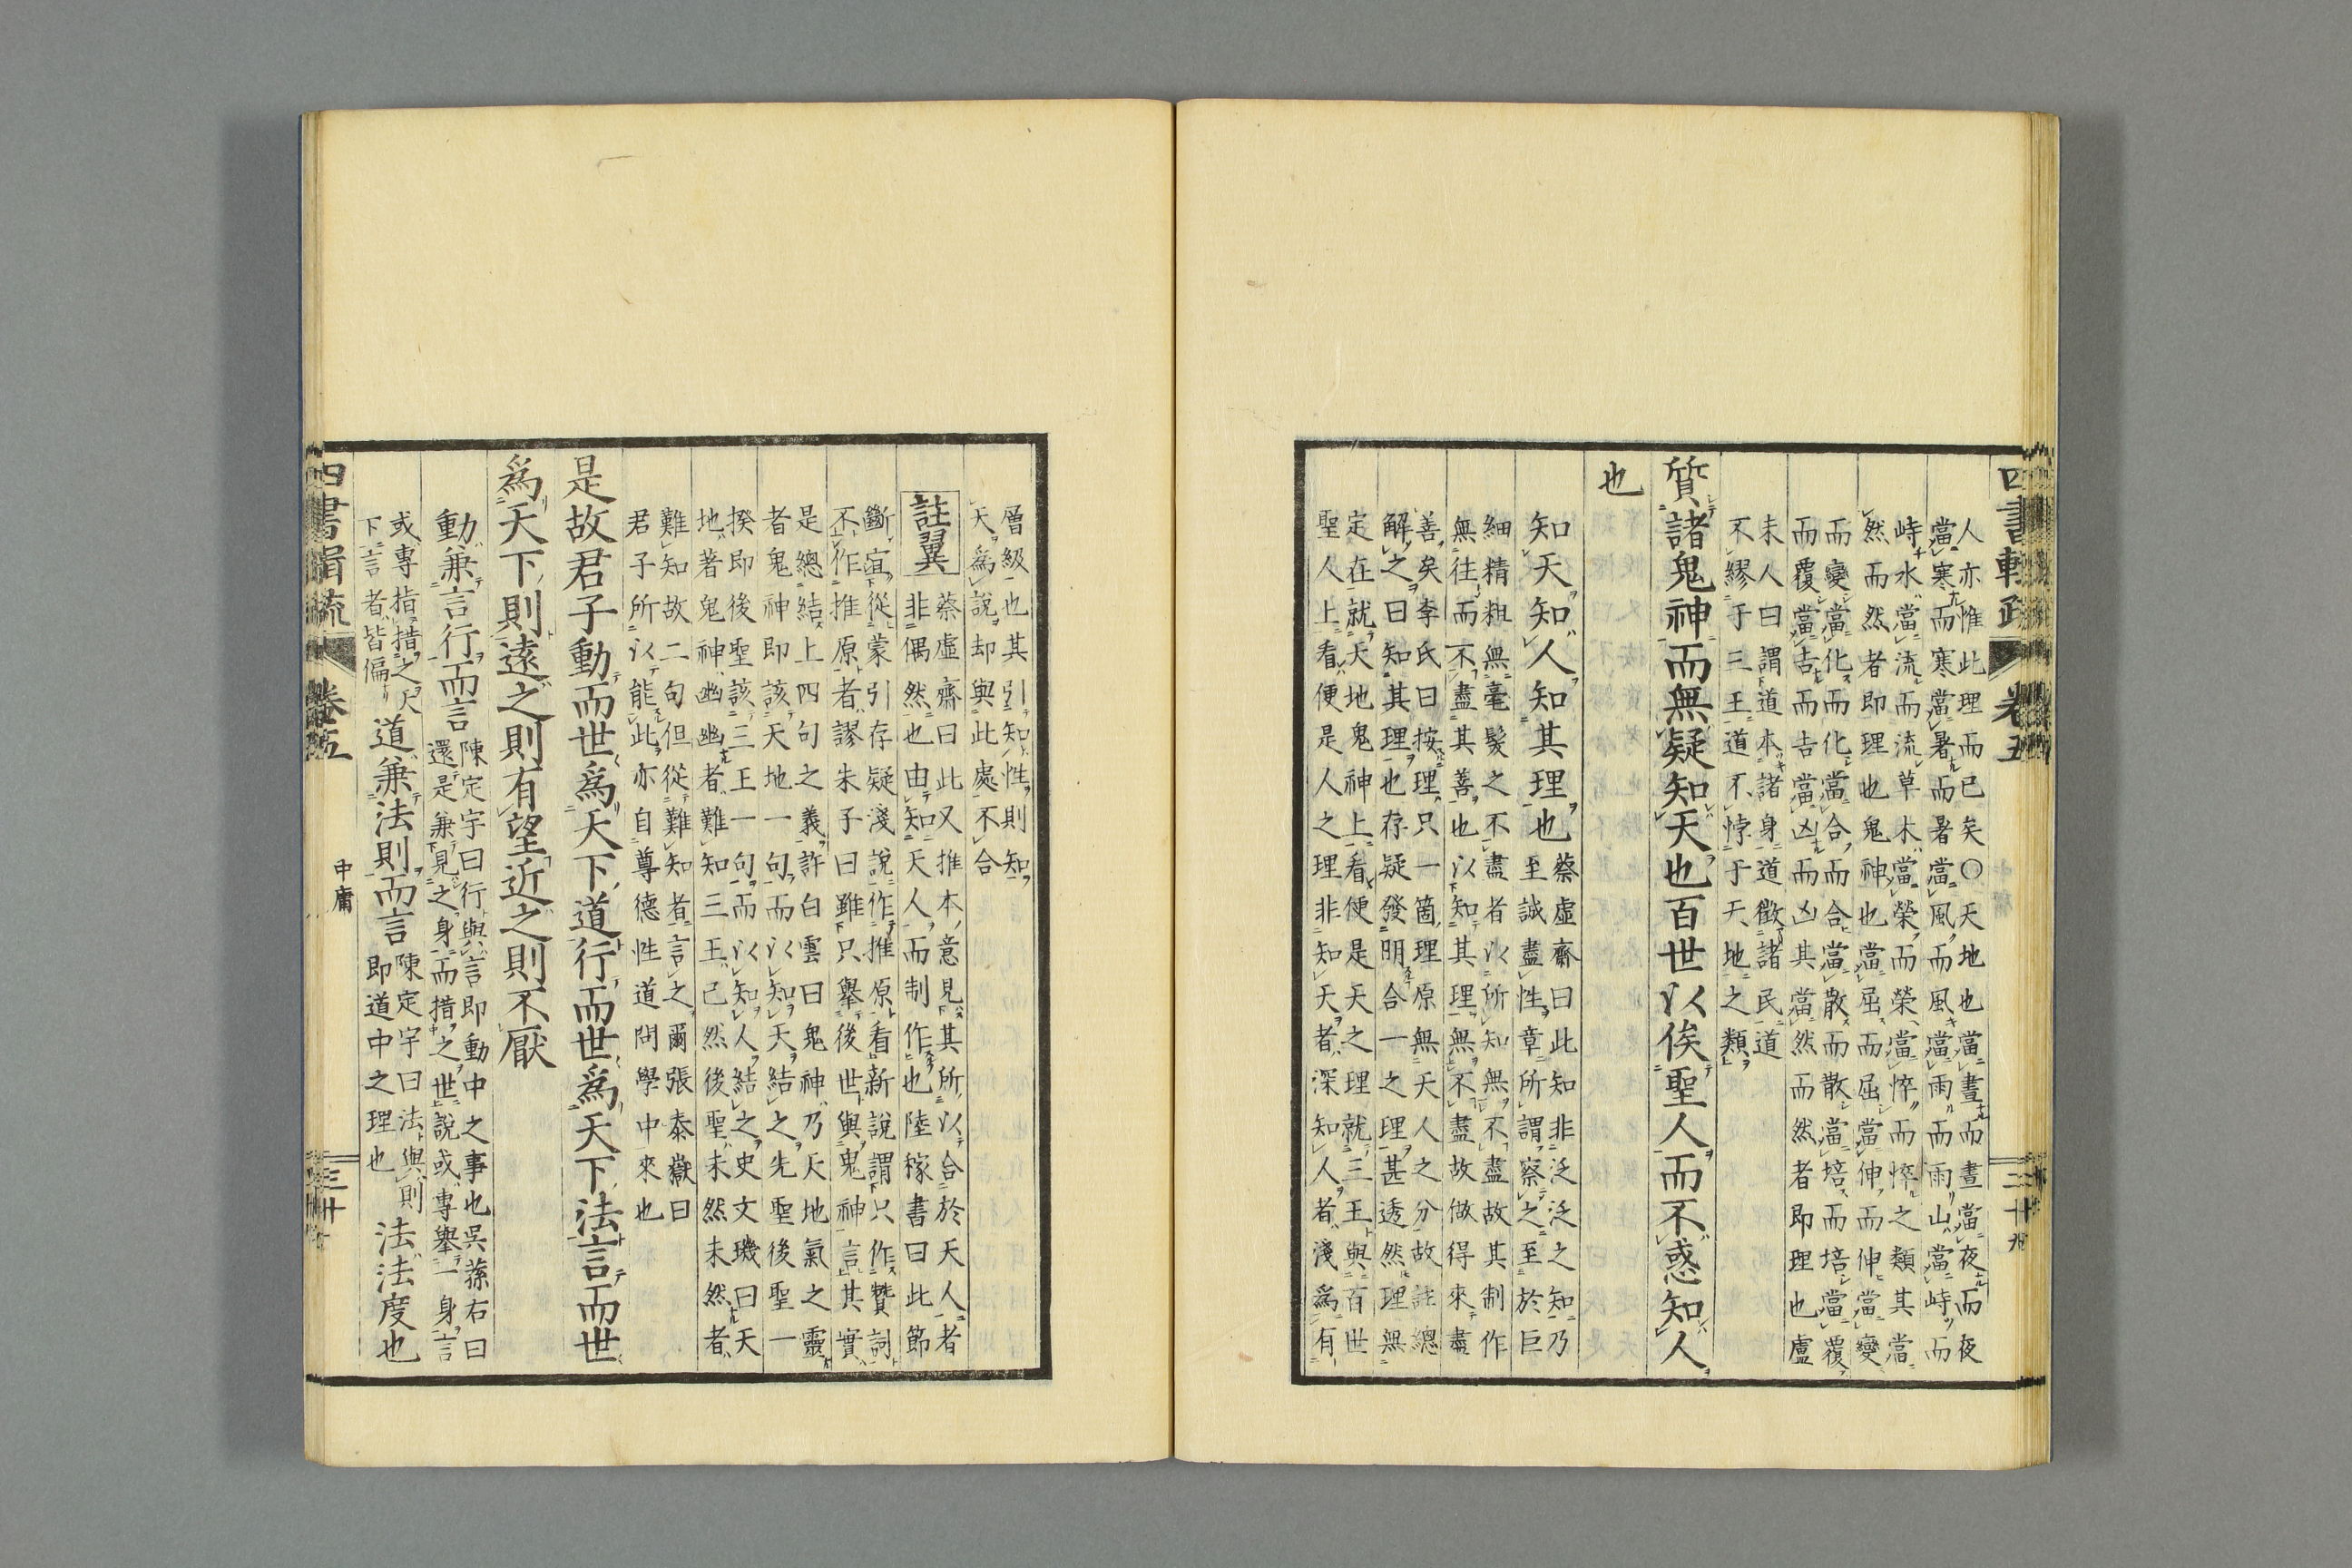 人亦惟此理而已矣○天地也當晝而晝當夜而夜
當寒而寒當暑而暑當風而風當雨而雨山當峙而
峙水當流而流草木當榮而榮當悴而悴之類其當
然而然者即理也鬼神也當屈而屈當伸而伸當變
而變當化而化當合而合當散而散當培而培當覆
而覆當吉而吉當凶而凶其當然而然者即理也盧
未人曰謂道本諸身道徵諸民道
不繆于三王道不悖于天地之類
質諸鬼神而無疑知天也百世以俟聖人而不惑知人
也
知天知人知其理也
蔡虛齋曰此知非泛泛之知乃
至誠盡性章所謂察之至於巨
細精粗無毫髮之不盡者以所知無不盡故其制作
無往而不盡其善也以知其理無不盡故做得來盡
善矣李氏曰按理只一箇理原無天人之分故註總
解之曰知其理也存疑發明合一之理甚透然理無
定在就天地鬼神上看便是天之理就三王與百世
聖人上看便是人之理非知天者深知人者淺為有
四書輯疏
卷五
二十九
層級也其引知性則知
天為說却與此處不合
註翼
蔡虛齋曰此又推本意見其所以合於天人者
非偶然也由知天人而制作也陸稼書曰此節
斷宜從蒙引存疑淺說作推原看新說謂只作贊詞
不作推原者謬朱子曰雖只舉後世與鬼神言其實
是總結上四句之義許白雲曰鬼神乃天地氣之靈
者鬼神即該天地一句而以知天結之先聖後聖一
揆即後聖該三王一句而以知人結之史文璣曰天
地著鬼神幽幽者難知三王已然後聖未然未然者
難知故二句但從難知者言之爾張泰嶽曰
君子所以能此亦自尊德性道問學中來也
是故君子動而世為天下道行而世為天下法言而世
為天下則遠之則有望近之則不厭
動兼言行而言
陳定宇曰行與言即動中之事也吳蓀右曰
還是兼見之身而措之世說或專舉一身言
或專指措之天
下言者皆偏
道兼法則而言
陳定宇曰法與則
即道中之理也
法法度也
四書輯疏
卷五
中庸
三十